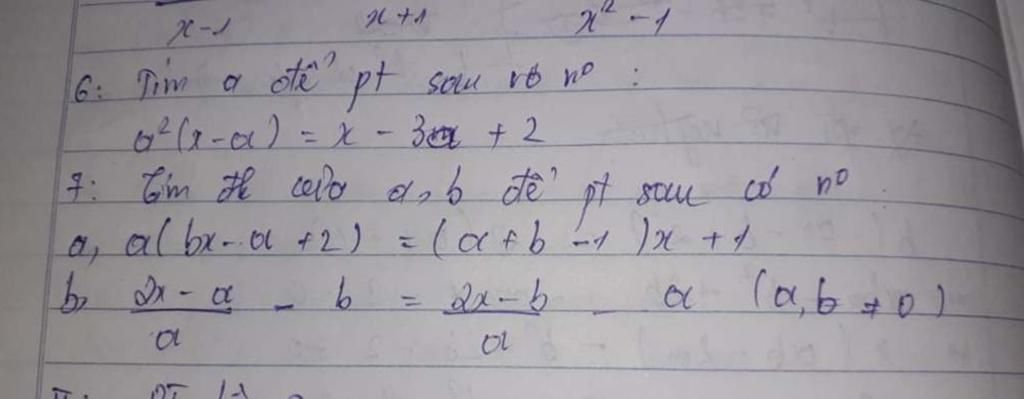 x-1 x+1 x² - 1
6: Tìm a để pt sau vô nº :
a²(x-a) = x - 3a + 2
7: Tìm đk của a, b để pt sau có nº
a, a(bx - a + 2) = (a + b - 1)x + 1
b, \frac{2x - a}{a} - b = \frac{2x - b}{a} - a (a, b ≠ 0)